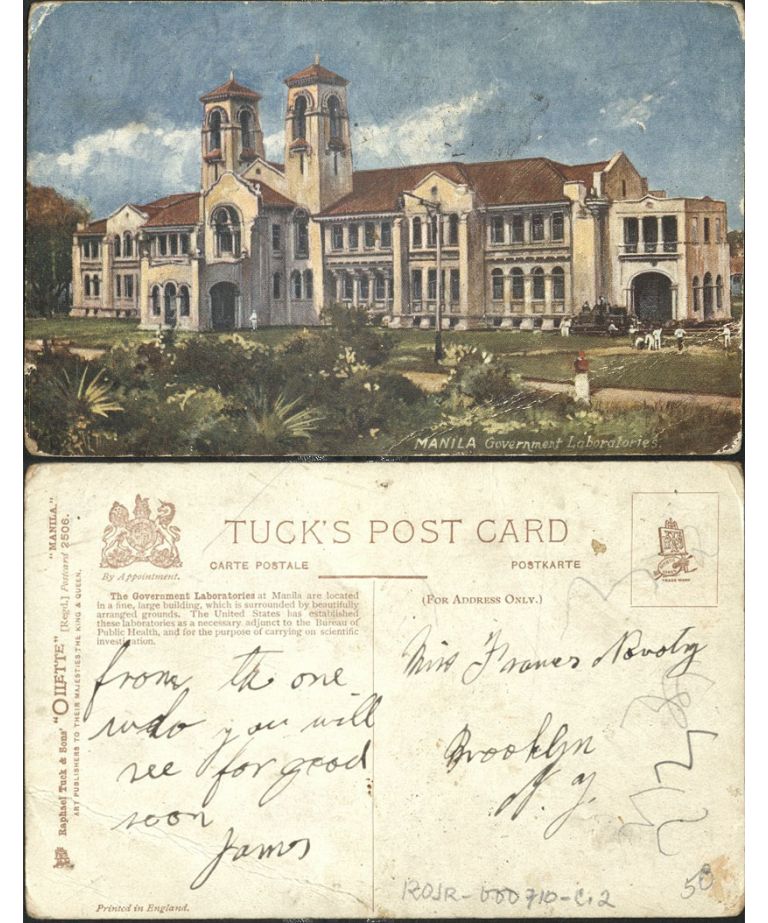 MANILA Government Laboratories.
TUCK'S POST CARD
CARTE POSTALE
POSTKARTE
By Appointment.
(FOR ADDRESS ONLY.)
The Government Laboratories at Manila are located
in a fine, large building, which is surrounded by beautifully
arranged grounds. The United States has established
these laboratories as a necessary adjunct to the Bureau of
Public Health, and for the purpose of carrying on scientific
investigation.
from the one
who you will
see for good
soon
James
Miss Frances Novoty
Brooklyn
N. Y.
Raphael Tuck & Sons' "OILETTE" [Regd.] Postcard 2506. "MANILA."
ART PUBLISHERS TO THEIR MAJESTIES THE KING & QUEEN.
TRADE MARK
Printed in England.
ROJR-000710-C.2
50